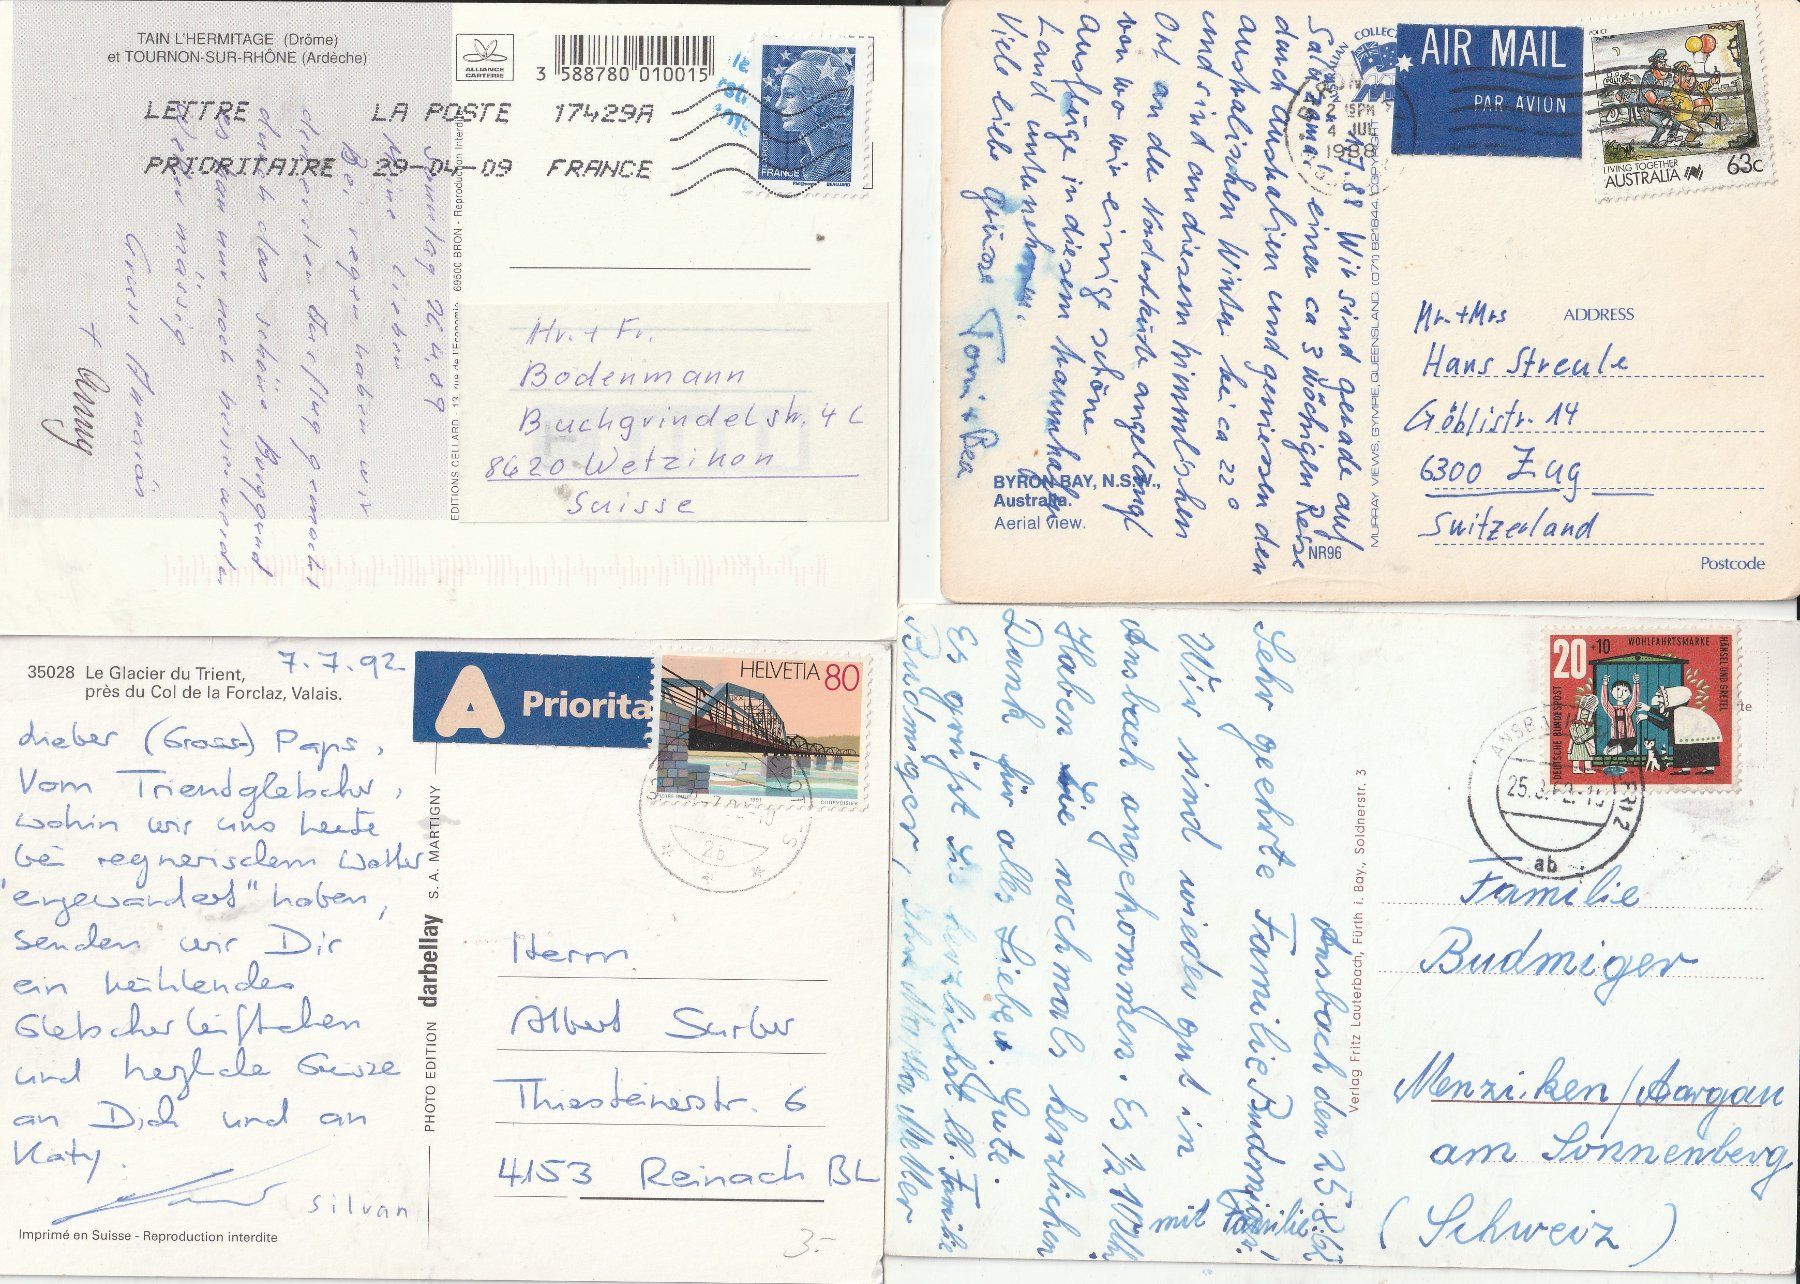 TAIN L'HERMITAGE (Drôme)
et TOURNON-SUR-RHÔNE (Ardèche)
ALLIANCE
CARTERIE
3 588780 010015
LETTRE LA POSTE 17429A
PRIORITAIRE 29-04-09 FRANCE
FRANCE
EDITIONS CELLARD - 13, rue de l'Economie 69500 BRON - Reproduction Interdite
Sonntag 26.4.09
Meine Lieben
Bei regen haben wir
den ersten Ausflug gemacht
durch das schöne Burgund
Gruss Annarös
+ Anny
Hr. + Fr.
Bodenmann
Buchgrindelstr. 4 C
8620 Wetzikon
Suisse
COLLECTION
AIR MAIL
PAR AVION
POLICE
LIVING TOGETHER
AUSTRALIA 63c
4 JUL
1988
Salü zäma! 2.7.88 Wir sind gerade auf
einer ca 3 wöchigen Reise
durch Australien und geniessen den
australischen Winter bei ca 22°
und sind an diesem himmlischen
Ort an der Nordostküste angelangt
von wo wir einige schöne
Ausflüge in diesem traumhaften
Land unternehmen.
Viele liebe Grüsse Tomi + Bea
BYRON BAY, N.S.W.,
Australia.
Aerial view.
NR96
MURRAY VIEWS, GYMPIE, QUEENSLAND. (071) 821844. COPYRIGHT
ADDRESS
Mr. + Mrs
Hans Streule
Göblistr. 14
6300 Zug
Switzerland
Postcode
35028 Le Glacier du Trient,
près du Col de la Forclaz, Valais.
7.7.92
A Priorita
HELVETIA 80
1991
Lieber (Gross-) Paps,
Vom Triendgletscher,
wohin wir uns heute
bei regnerischem Wetter
"ergewandert" haben,
senden wir Dir
ein kühlendes
Gletscherlüftchen
und herzliche Grüsse
an Dich und an
Katy.
Silvan
Imprimé en Suisse - Reproduction interdite
PHOTO EDITION darbellay S. A. MARTIGNY
Herrn
Albert Surber
Thiersteinerstr. 6
4153 Reinach BL
3.-
20 +10 WOHLFAHRTSMARKE
HÄNSEL UND GRETEL
DEUTSCHE BUNDESPOST
ab
Ansbach den 25.8.62
Sehr geehrte Familie Budmiger!
Wir sind wieder gut in
Ansbach angekommen. Es ½ 10 Uhr
Haben Sie nochmals herzlichen
Dank für alles Liebe u. Gute.
Es grüßt Sie herzlichst lb. Familie
Budmiger, Ihre Martha Weller
mit Familie
Verlag Fritz Lauterbach, Fürth i. Bay., Soldnerstr. 3
Familie
Budmiger
Menziken/Aargau
am Sonnenberg
(Schweiz)